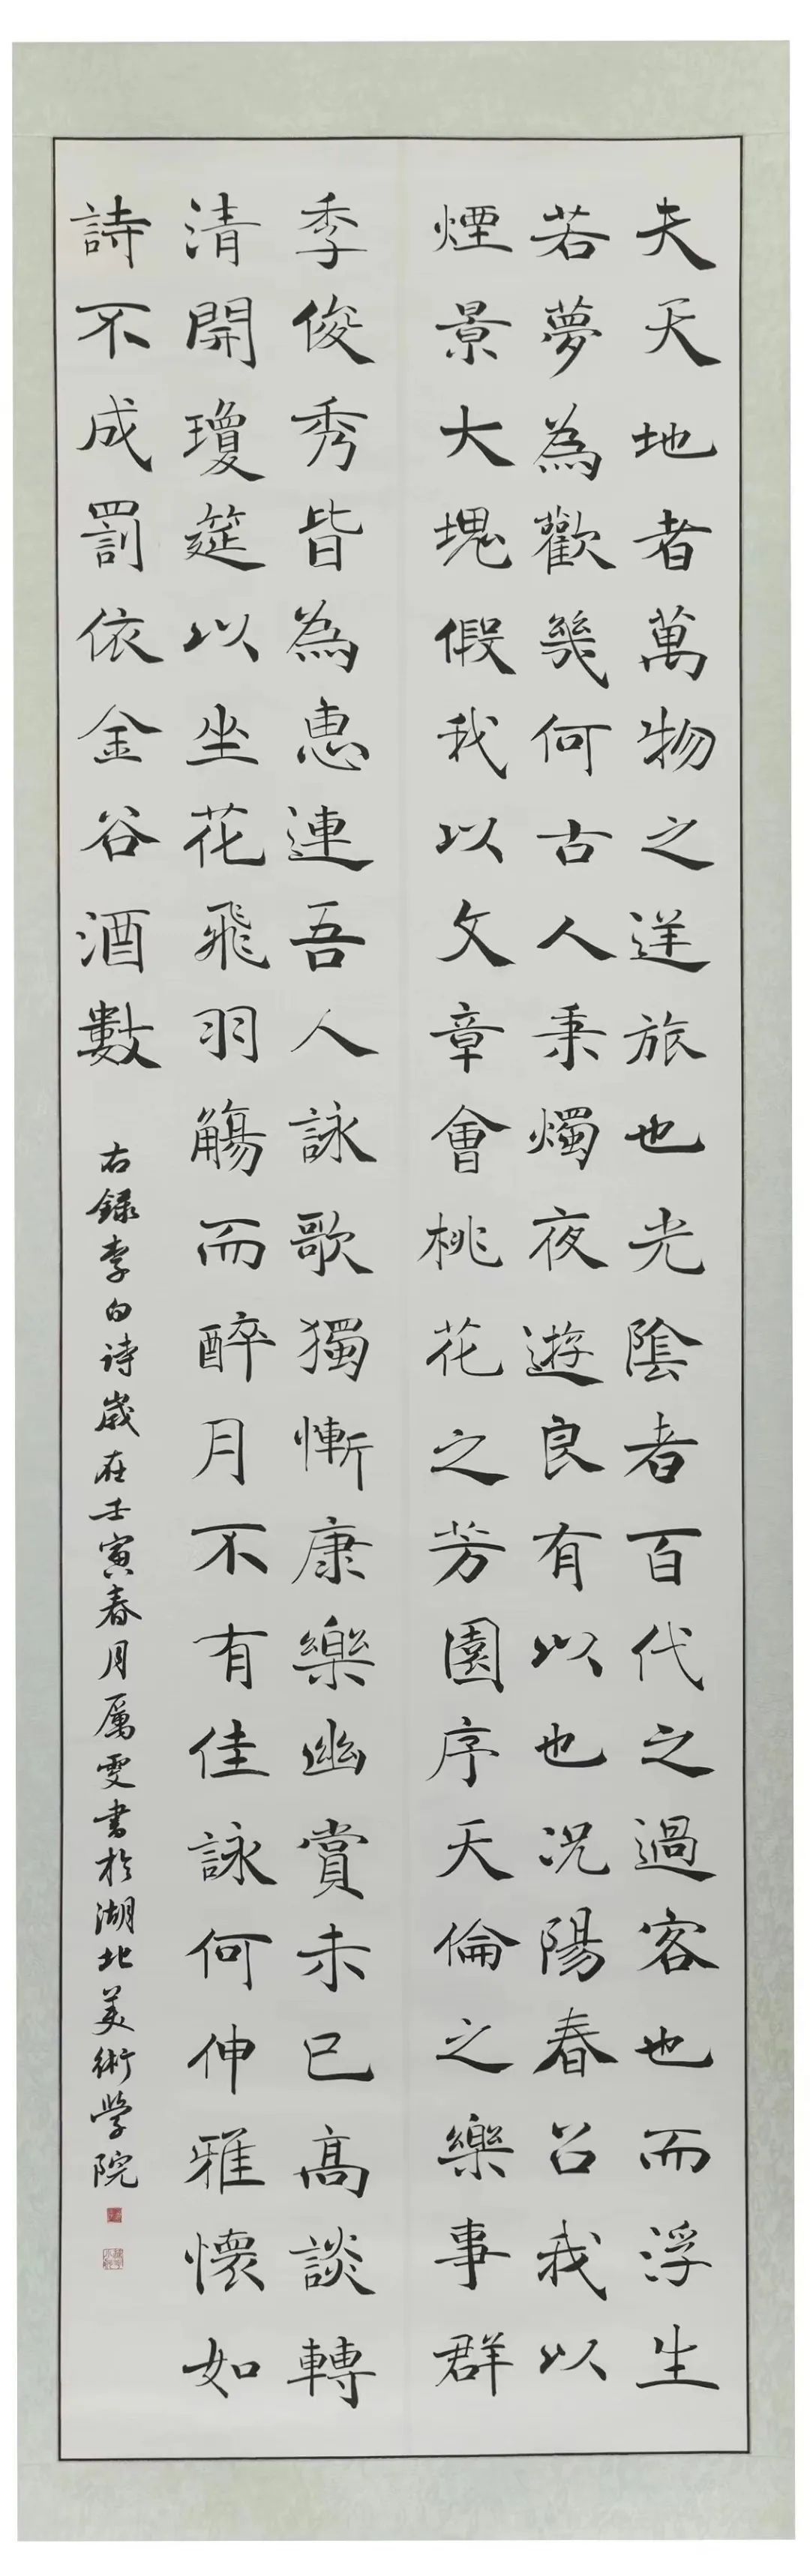 夫天地者萬物之逆旅也光陰者百代之過客也而浮生
若夢為歡幾何古人秉燭夜遊良有以也況陽春召我以
煙景大塊假我以文章會桃花之芳園序天倫之樂事群
季俊秀皆為惠連吾人詠歌獨慚康樂幽賞未已高談轉
清開瓊筵以坐花飛羽觴而醉月不有佳詠何伸雅懷如
詩不成罰依金谷酒數
右録李白诗歲在壬寅春月厲雯書於湖北美術學院